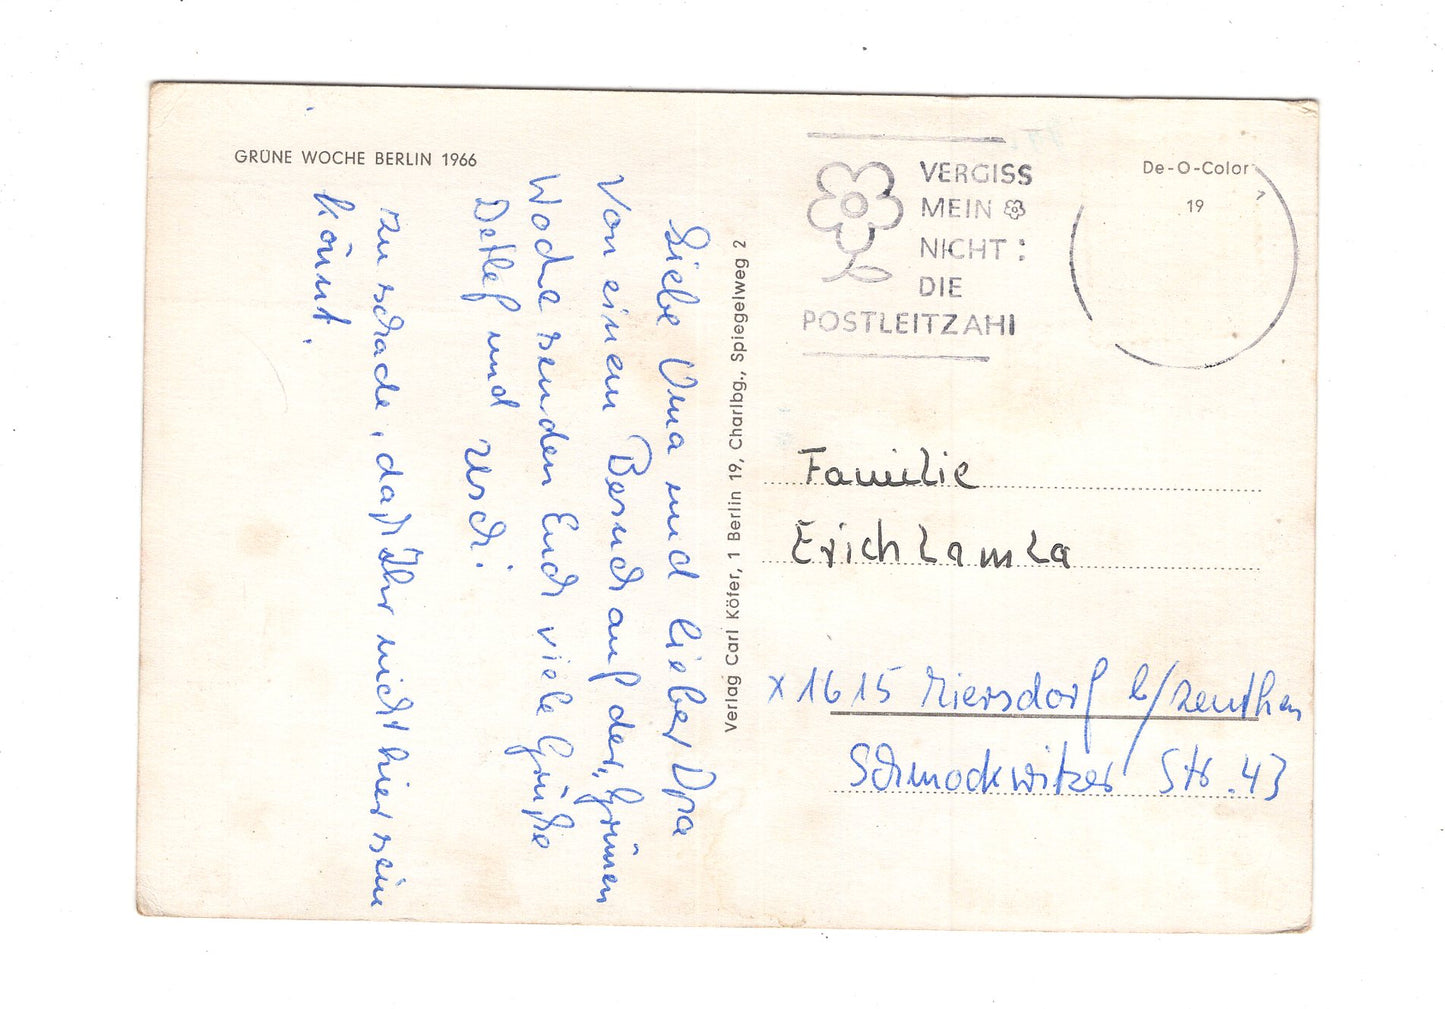 GRÜNE WOCHE BERLIN 1966
Liebe Oma und lieber Opa
Von einem Besuch auf der „Grünen
Woche senden Euch viele Grüße
Detlef und Uschi.
zu schade, daß Ihr nicht hier sein
könnt.
Verlag Carl Köfer, 1 Berlin 19, Charlbg., Spiegelweg 2
VERGISS
MEIN
NICHT:
DIE
POSTLEITZAHl
De-O-Color
19
Familie
Erich Lamla
x 1615 Miersdorf b/Zeuthen
Schmöckwitzer Str. 43